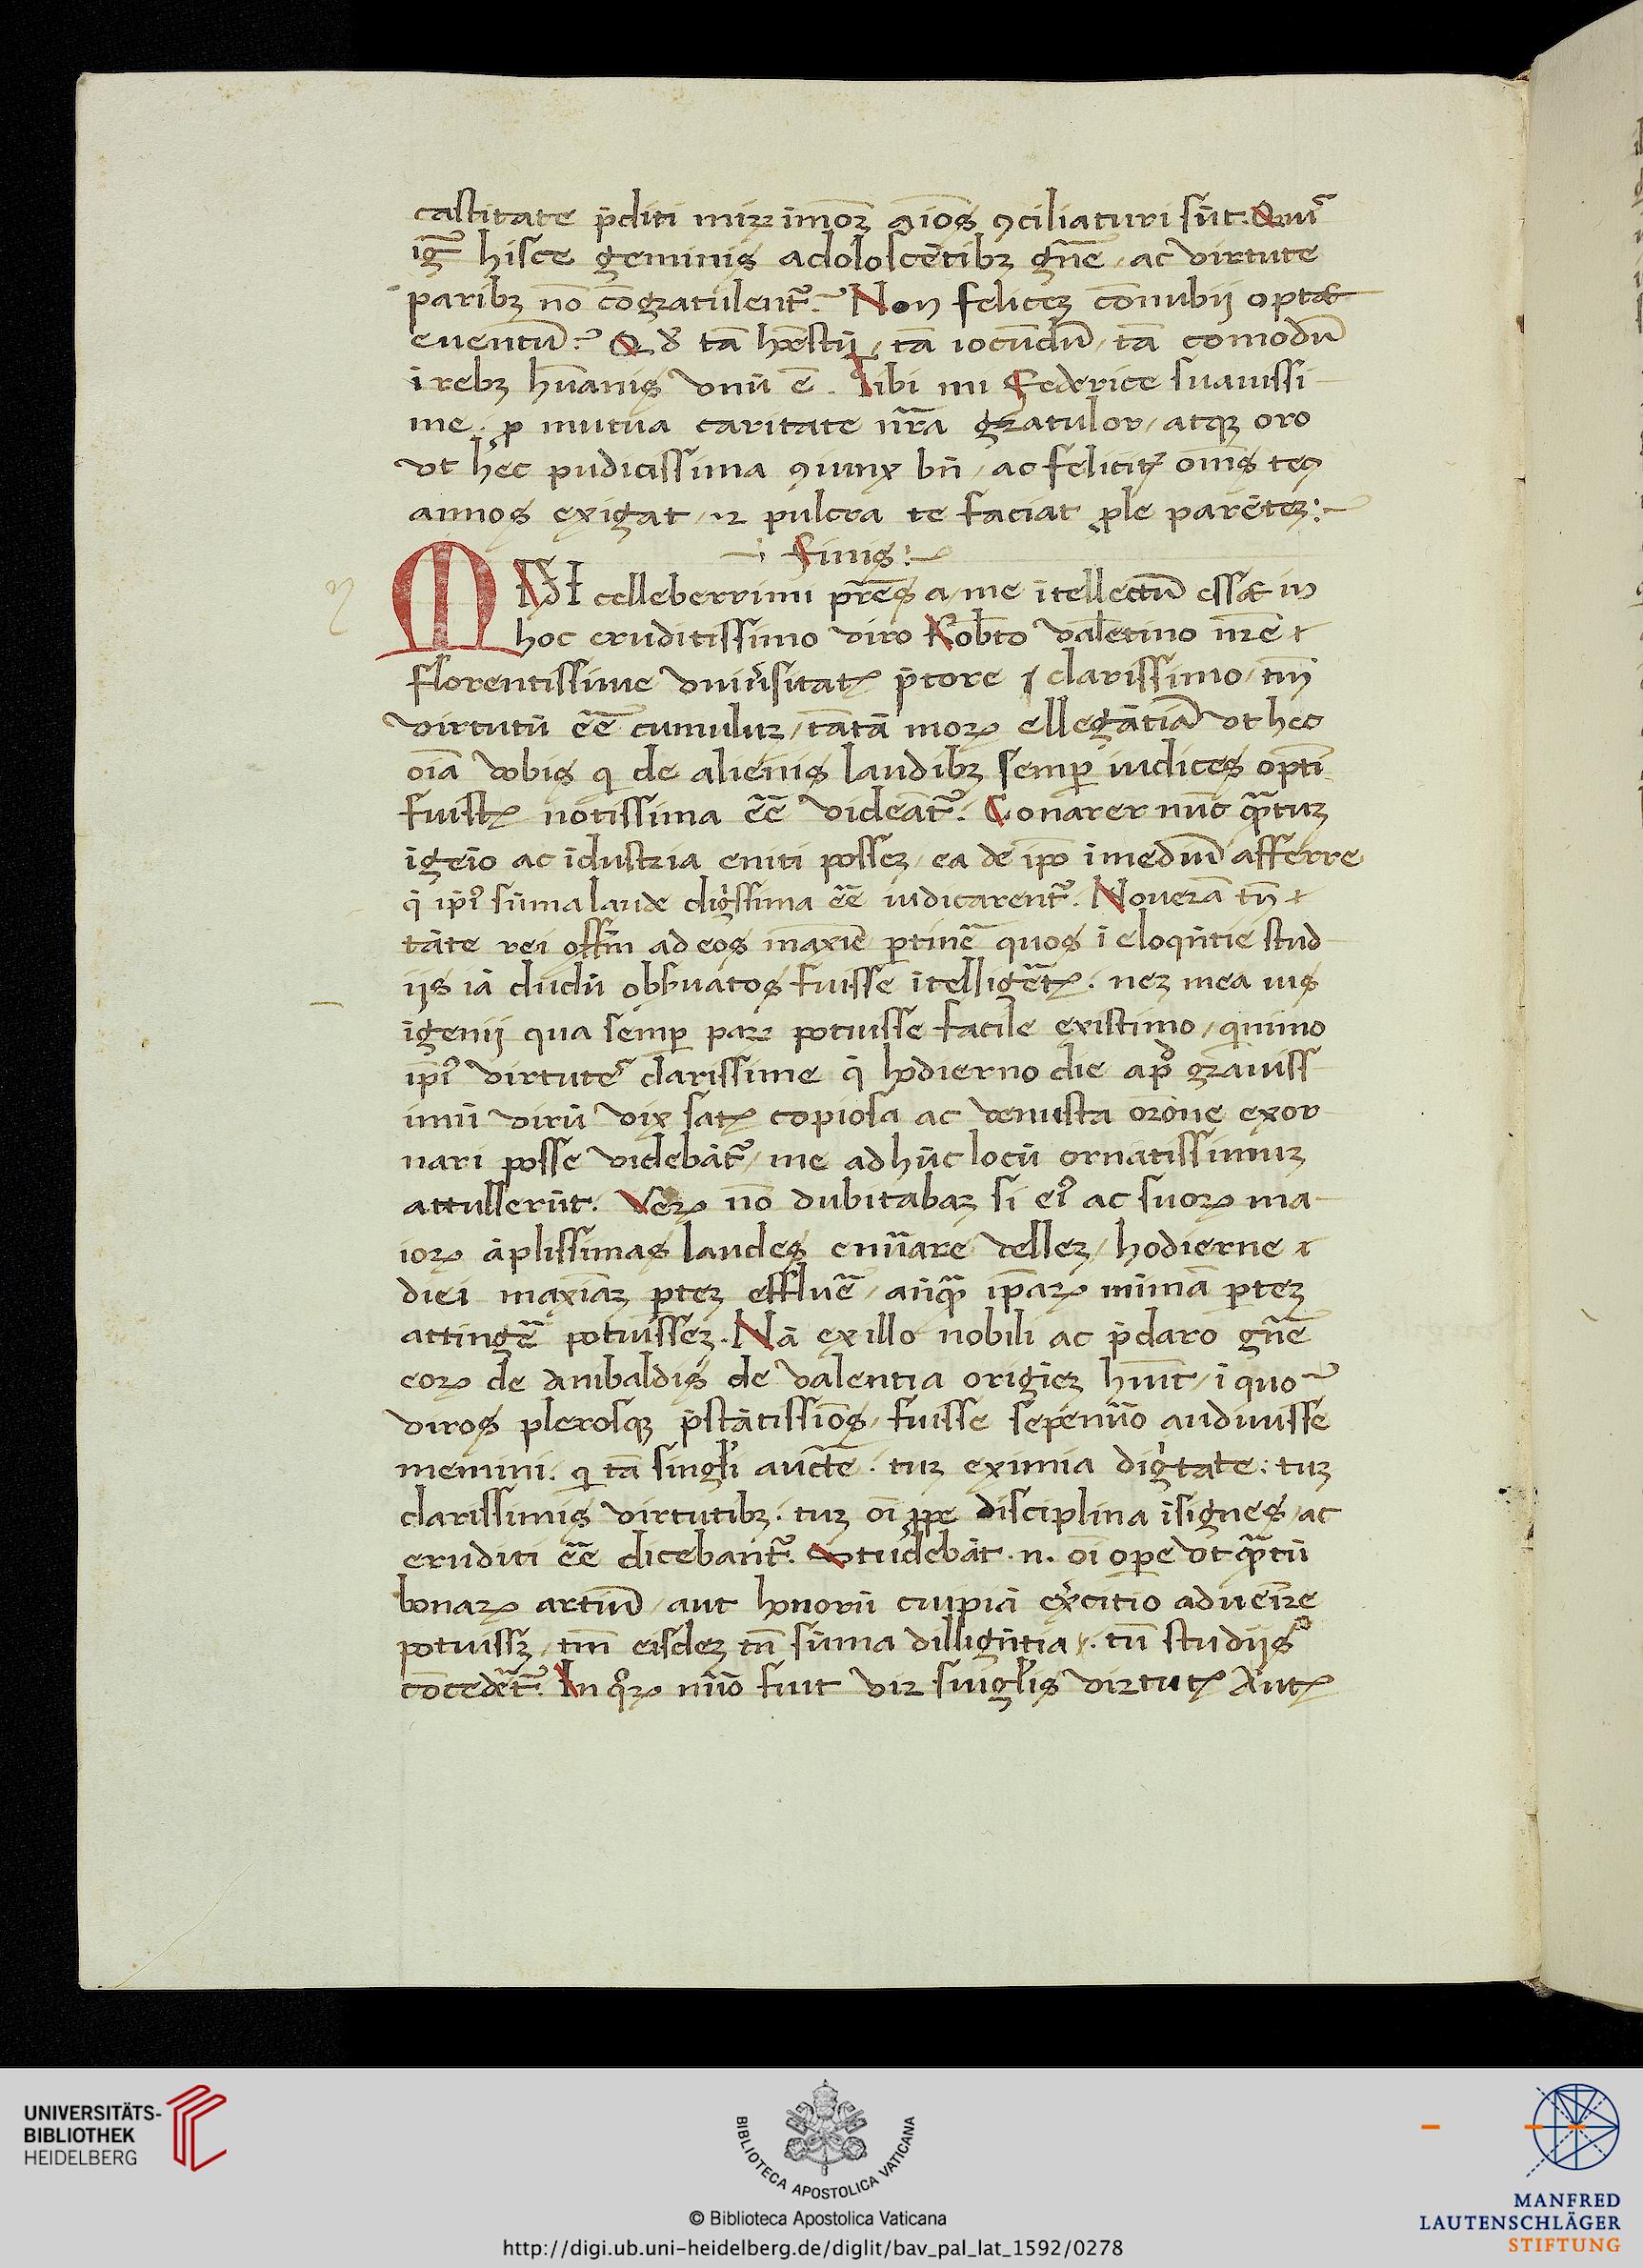 castitate p̄diti miꝝ īmoꝝ ꝯiōs ꝯciliaturi sūt. Quīs
igr̄ hisce geminis adoloscētibꝫ gn̄e / ac virtute
paribꝫ nō cōgratulentr̄? Non felicē cōnubii optāt
euentū? Qd̄ tā hōestū, tā iocūdū, tā comodū
ī rebꝫ hūanis vnū ē. Tibi mi Federice suauissi-
me. ꝓ mutua caritate nr̄a gratulor / atqꝫ oro
vt hec pudicissima ꝯiunx bn̄ / ac felicitꝫ om̄s tecū
annos exigat, ⁊ pulcra te faciat ꝓle parētē:
finis:
MNSI celleberrimi pr̄es a me ītellectū essꝫ in
hoc eruditissimo viro Robto valētino nr̄e
florentissime vniu̓sitatꝭ p̄tore clarissimo, tm̄
virtutū eē̄ cumulū, tātā moꝝ ellegātiā vt hec
oīa vobis qui de alienis laudibꝫ semꝑ iudices optī
fuistꝭ notissima eē̄ videātr̄. Conarer nūc qr̄atuꝫ
īgeīo ac īdustria eniti possē, ea de īpō ī mediū afferre
q̄ ip̄iꝰ sūma laude dig̓ssima eē̄ iudicarentr̄. Nouerā tn̄
tāte rei offm̄ ad eos maxīē ꝑtinē quos ī eloqn̄tie stud-
iis iā dudū obs̓uatos fuisse ītelligētꝭ. neꝫ mea iuͥs
īgenii qua semꝑ paꝝ potuisse facile existimo, quīmo
ip̄iꝰ virtutes clarissime q̄ hodierno die apd̄ grauiss
imū virū vix satꝭ copiosa ac venusta orōne exor
nari posse videbātr̄, me ad hūc locū ornatissimuꝫ
attullerūt. Veꝝ nō dubitabaꝫ si eiꝰ ac suoꝝ ma-
ioꝝ āplissimas laudes enūare velleꝫ, hodierne
diei maxiāꝫ ꝑteꝫ effluē, anq̄ꝫ ip̄aꝝ mīmā ꝑteꝫ
attingē potuisseꝫ. Nā ex illo nobili ac p̄claro gn̄e
eoꝝ de anibaldis de valentia origieꝫ hūit, ī quo
viros plerosqꝫ p̄stātissiōs, fuisse sepenūo audiuisse
memini. qui tā singl̓i auct̄e. tuꝫ eximia dig̓tate: tuꝫ
clarissimis virtutibꝫ. tuꝫ oī ꝓpe disciplina īsignes, ac
eruditi eē̄ dicebantr̄. Studebāt .n. oī oꝑe vt qr̄atū
bonaꝝ artiū, aut honorū cuipiā exc̓itio adueīre
potuissꝫ, tm̄ eisdeꝫ tn̄ sūma dillign̄tia, tū studiis
cōcedētr̄. In qͦꝝ nūo fuit vir singl̓is virtutꝭ Antꝭ
UNIVERSITÄTS-
BIBLIOTHEK
HEIDELBERG
BIBLIOTECA APOSTOLICA VATICANA
© Biblioteca Apostolica Vaticana
http://digi.ub.uni-heidelberg.de/diglit/bav_pal_lat_1592/0278
MANFRED
LAUTENSCHLÄGER
STIFTUNG